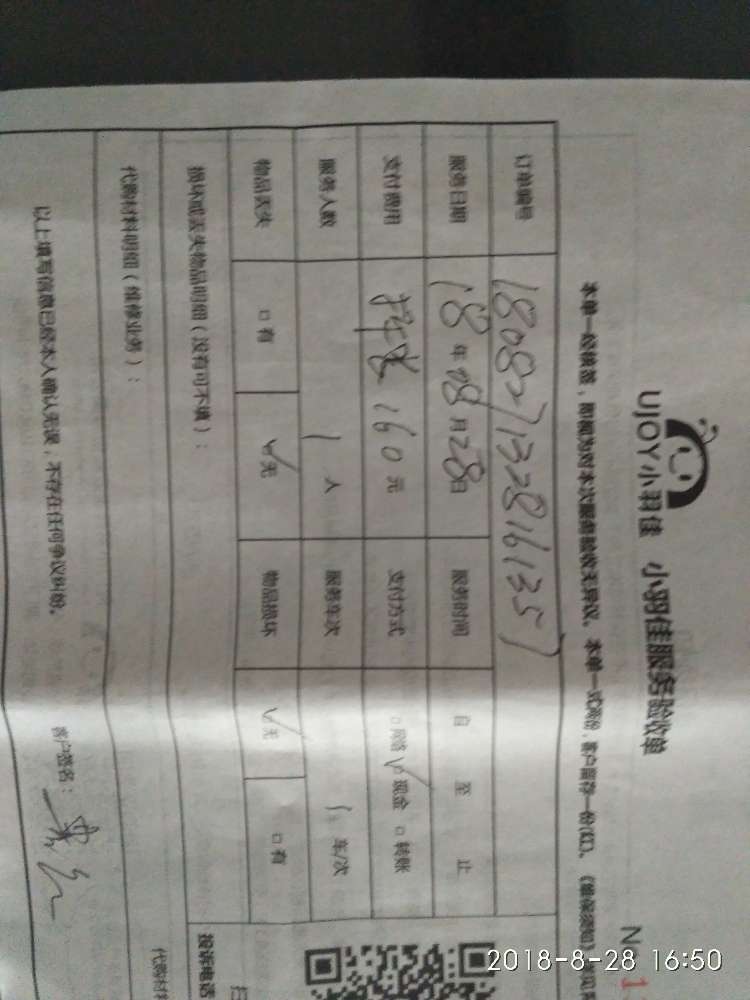 UJOY小羽佳 小羽佳服务验收单
No 1
本单一经核签，即视为对本次服务验收无异议。本单一式两份，客户留存一份(红)。《维保须知》
订单编号 1808271328161357
服务日期 18年08月28日 服务时间 自 至 止
支付费用 160元 支付方式 □网络 ☑现金 □转账
服务人数 1人 服务车次 1 车/次
物品丢失 □有 ☑无 物品损坏 ☑无 □有
损坏或丢失物品明细（没有可不填）：
投诉电话
代购材料明细（维修业务）：
代购材料
以上填写信息已经本人确认无误，不存在任何争议纠纷。 客户签名：
2018-8-28 16:50